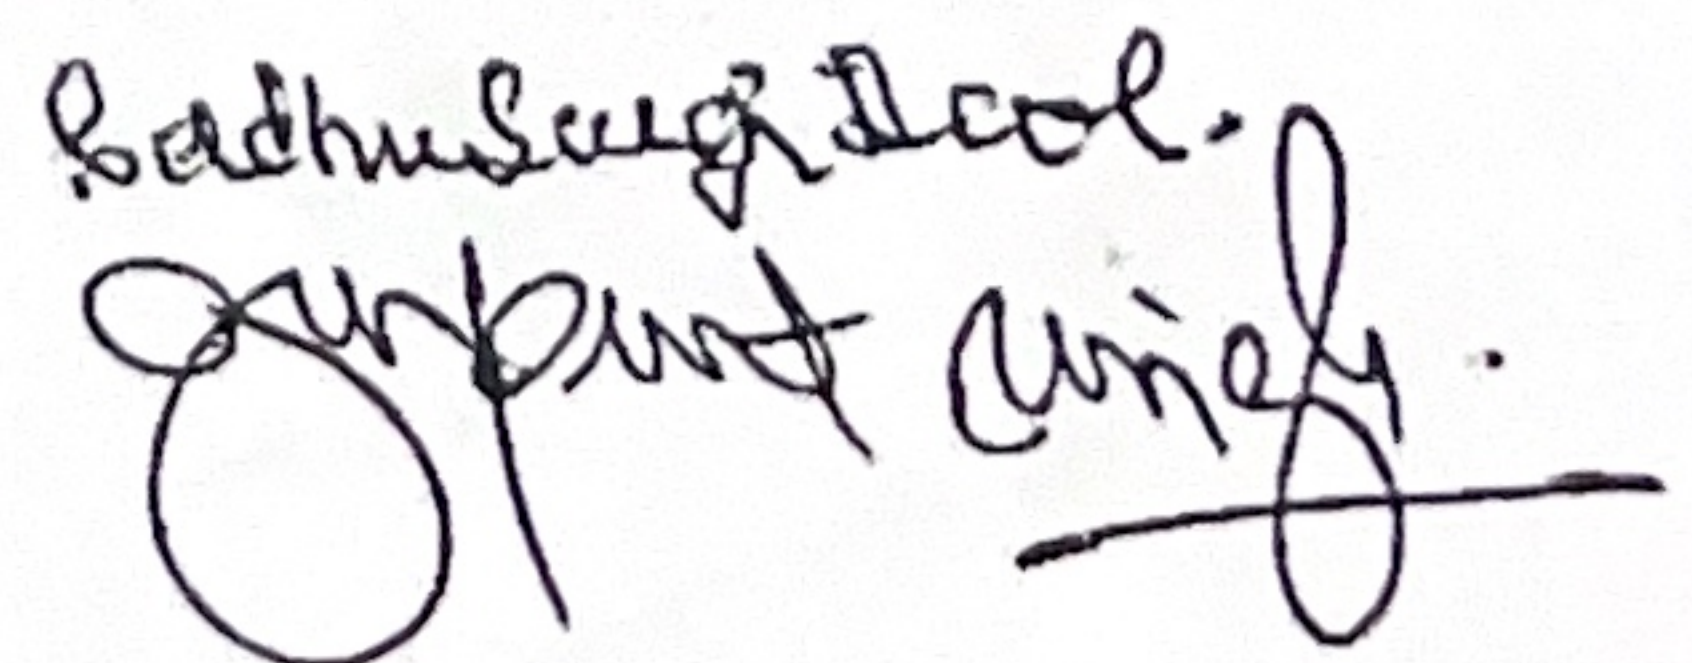 Sadhu Singh Deol.
Gurpreet Singh.